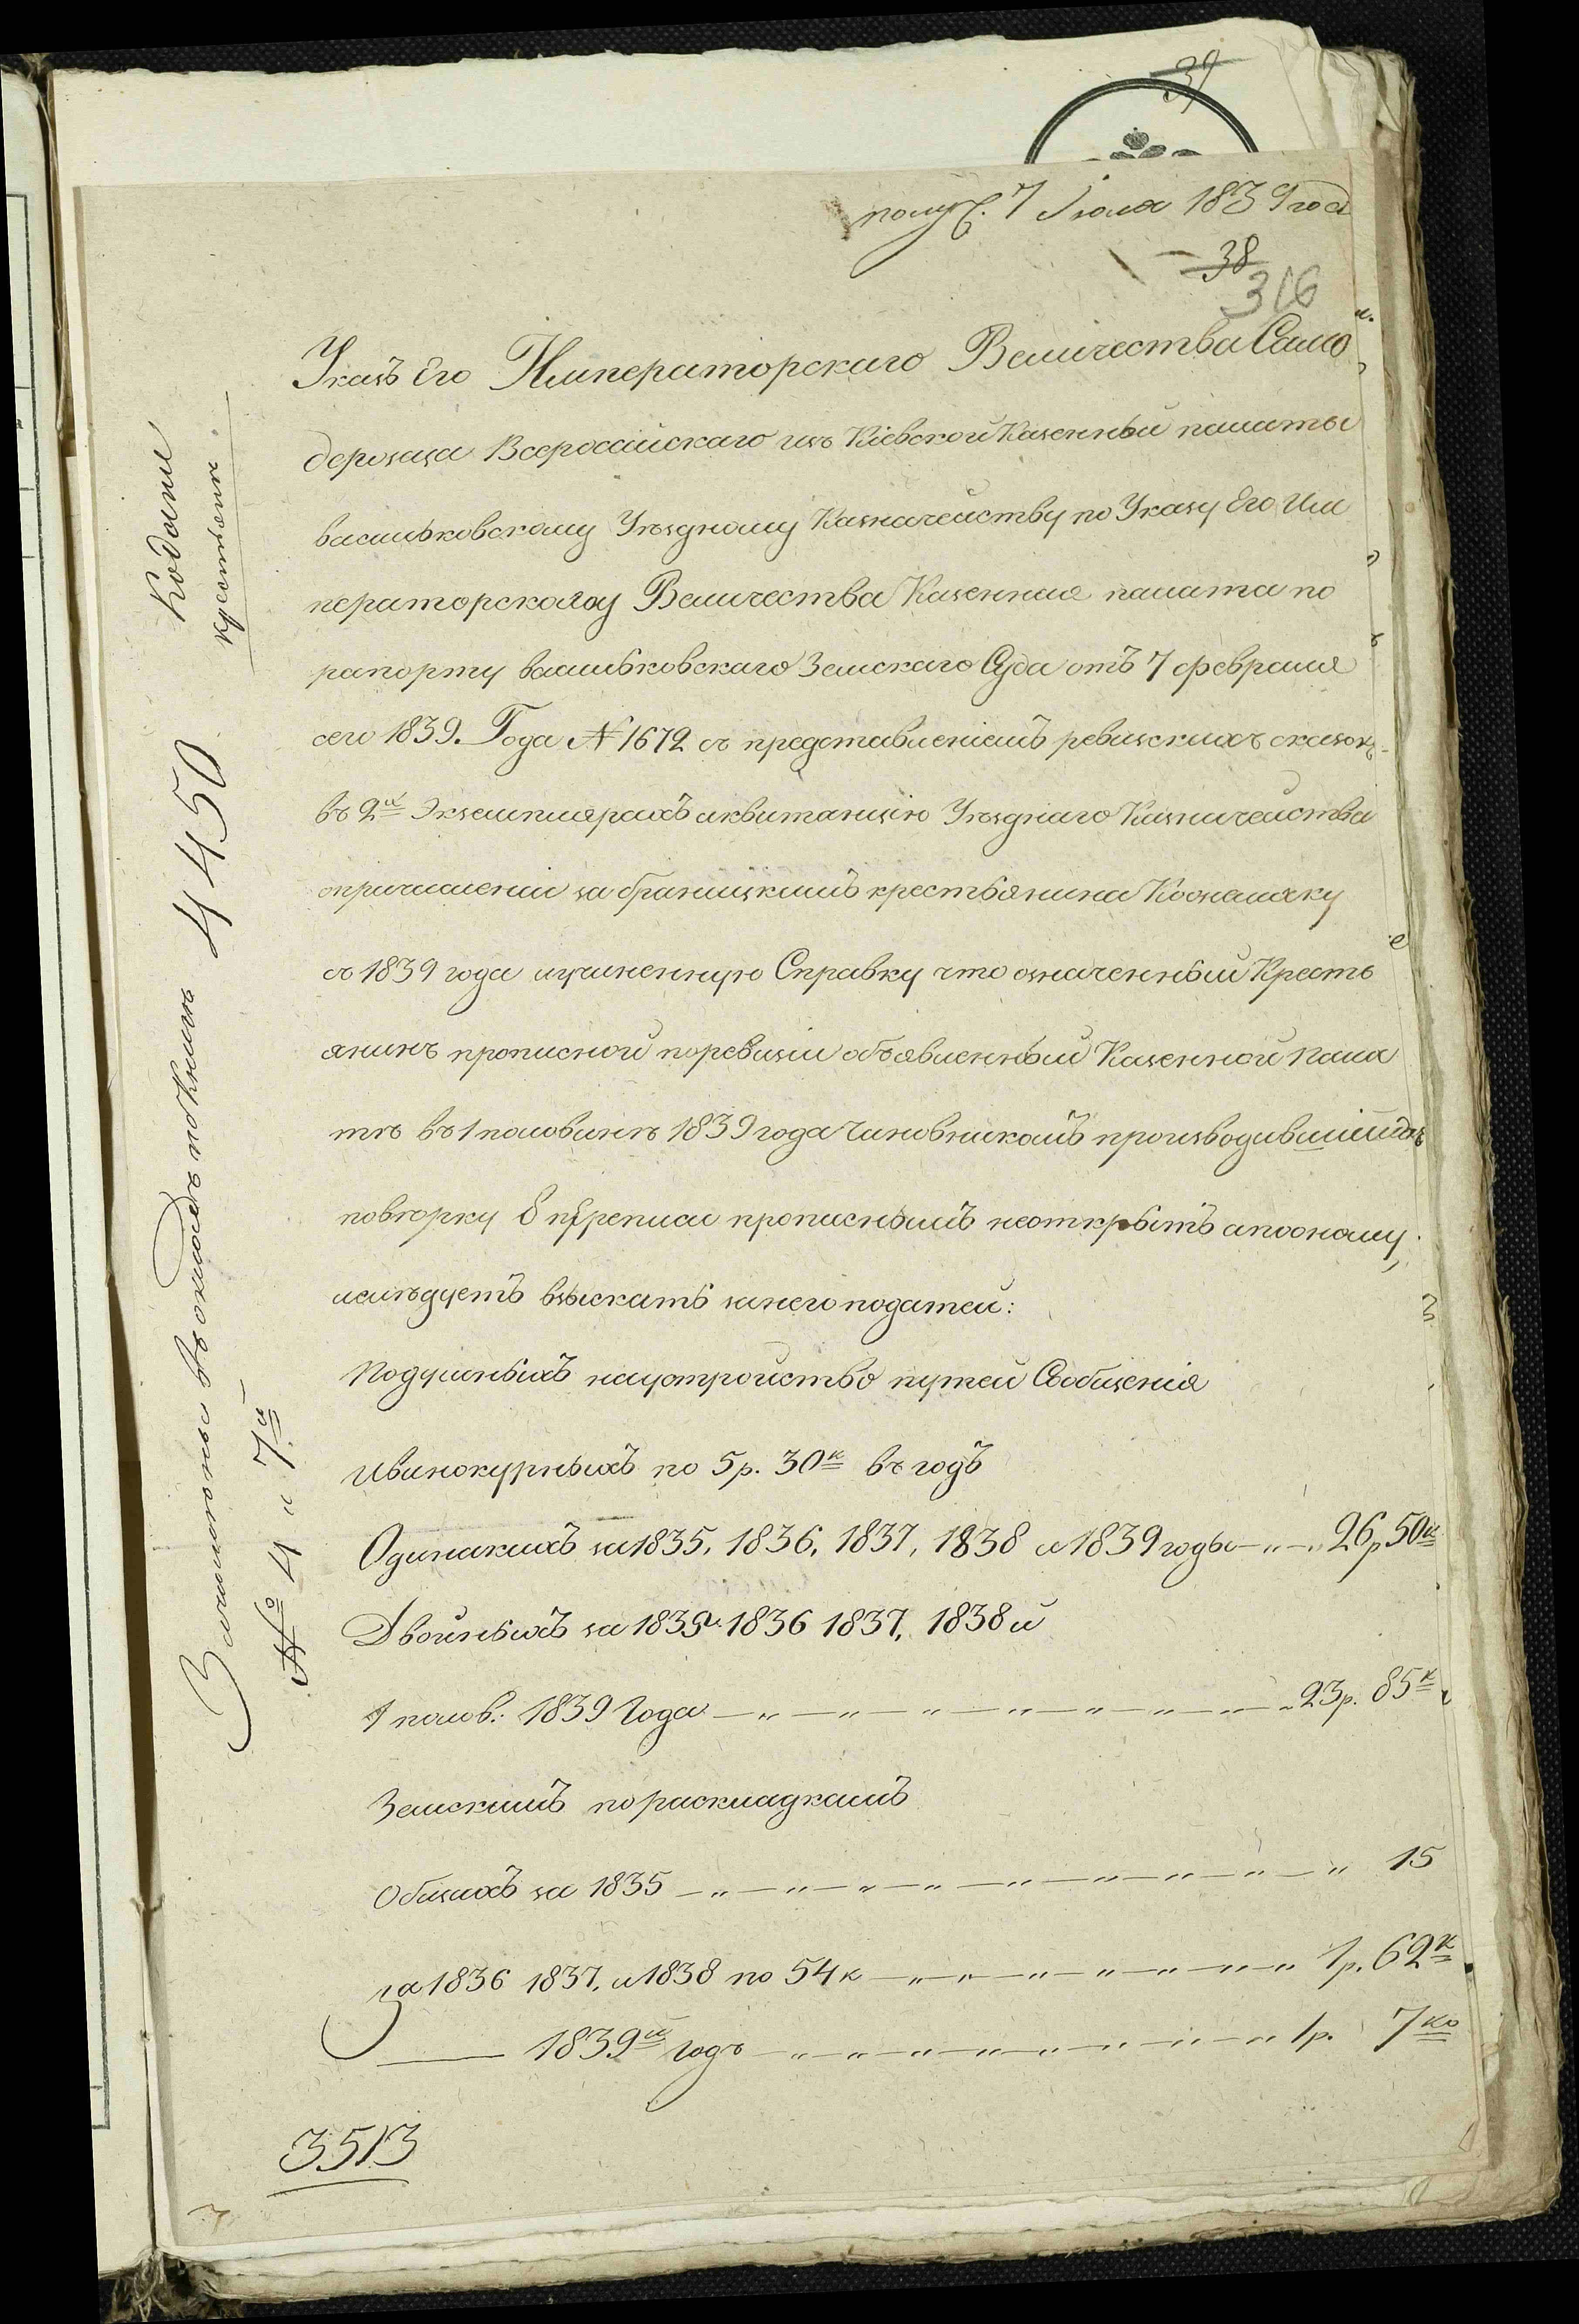 39
получ. 7 Июля 1839 год
38
316
Указъ Его Императорскаго Величества Само
держца Всеросайискаго изъ Кіевской Казенный палаты
васильковскому Уѣздному Казначейству по Указу Его Им
ператорскому Величества Казенная палата по
рапорту васильковскаго Земскаго Суда отъ 7 февраля
сего 1839. Года № 1672 съ представленіемъ ревизскихъ сказокъ
въ 2хъ Экземплярахъ и квитанцію Уѣзднаго Казначейства
опричисленіи за браницкимъ крестьянина
съ 1839 года и учиненную Справку что означенный Кресть
янинъ прописной по ревизіи объявленный Казенной пала
тѣ въ 1 половинѣ 1839 года Чиновникомъ производившимъ
повѣрку 8 переписи прописнымъ неоткрытъ а пооному,
слѣдуетъ взыскать за него податей:
Подушныхъ на устройство путей Сообщенія
и винокурныхъ по 5 р. 30к въ годъ
Одинакихъ за 1835, 1836, 1837, 1838 и 1839 годы — „ — „ 26 р 50к
Двойныхъ за 1835. 1836 1837, 1838 и
1 полов: 1839 Года — „ — „ — „ — „ — „ — „ — „ 23 р. 85к
Земскимъ по раскладкамъ
Общихъ за 1835 — „ — „ — „ — „ — „ — „ — „ 15
за 1836 1837, и 1838 по 54 к — „ — „ — „ — „ — „ 1 р. 62к
— 1839й годъ — „ — „ — „ — „ — „ — „ 1 р. 7ко
3513
Кодаки
крестьянъ
Зачислены въ окладъ по Книгѣ 4450
№ 4 и 7й